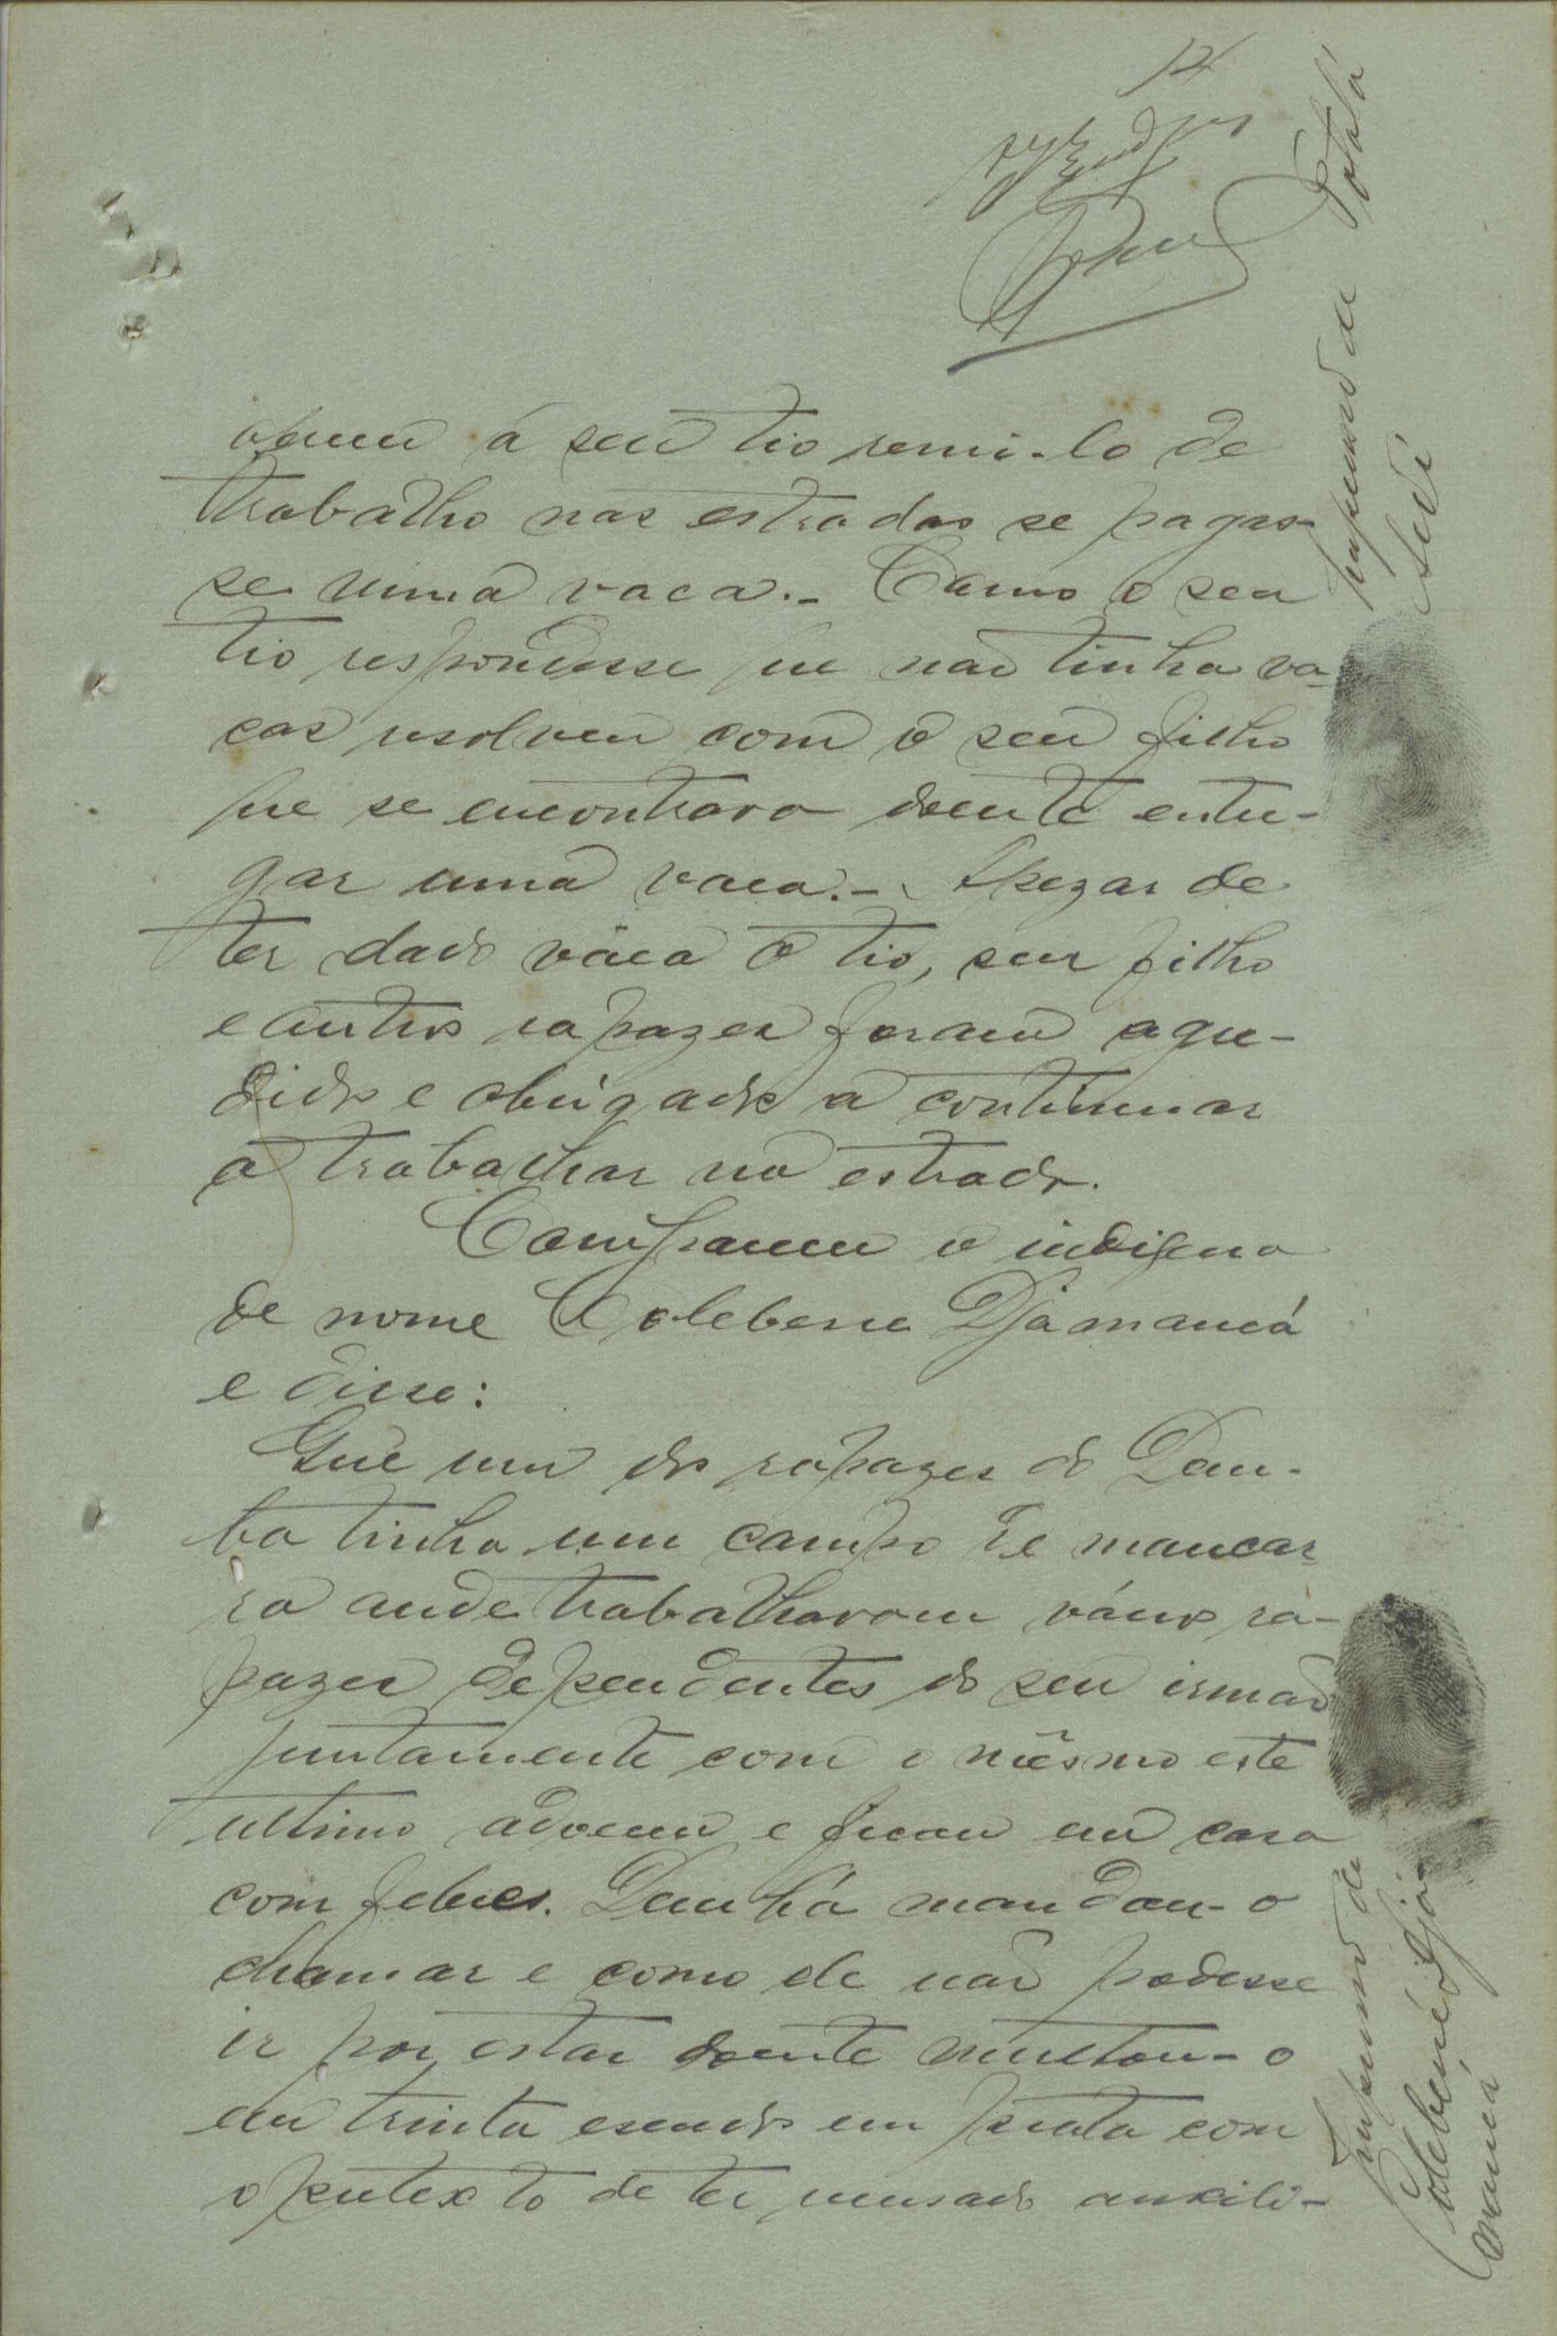 12
á seu tio remi-lo de
trabalho nas estradas se pagas-
se uma vaca. - Como o seu
tio respondesse que não tinha va-
cas resolveu com o seu filho
que se encontrava doente entre-
gar uma vaca. - Apezar de
ter dado vaca o tio, seu filho
e outros rapazes foram agre-
didos e obrigados a continuar
a trabalhar na estrada.
Compareceu o indigena
de nome Colebene Djamancá
e disse:
Que um dos rapazes do Dem-
ba tinha um campo de mancar-
ra onde trabalharam vários ra-
pazes dependentes do seu irmão
juntamente com o mêsmo este
ultimo adoeceu e ficou em casa
com febres. Dembá mandou-o
chamar e como ele não podesse
ir por estar doente multou-o
em trinta escudos em prata com
o pretexto de ter recusado auxili-
Impressão de
Impressão de
Colebené Djá-
mancá